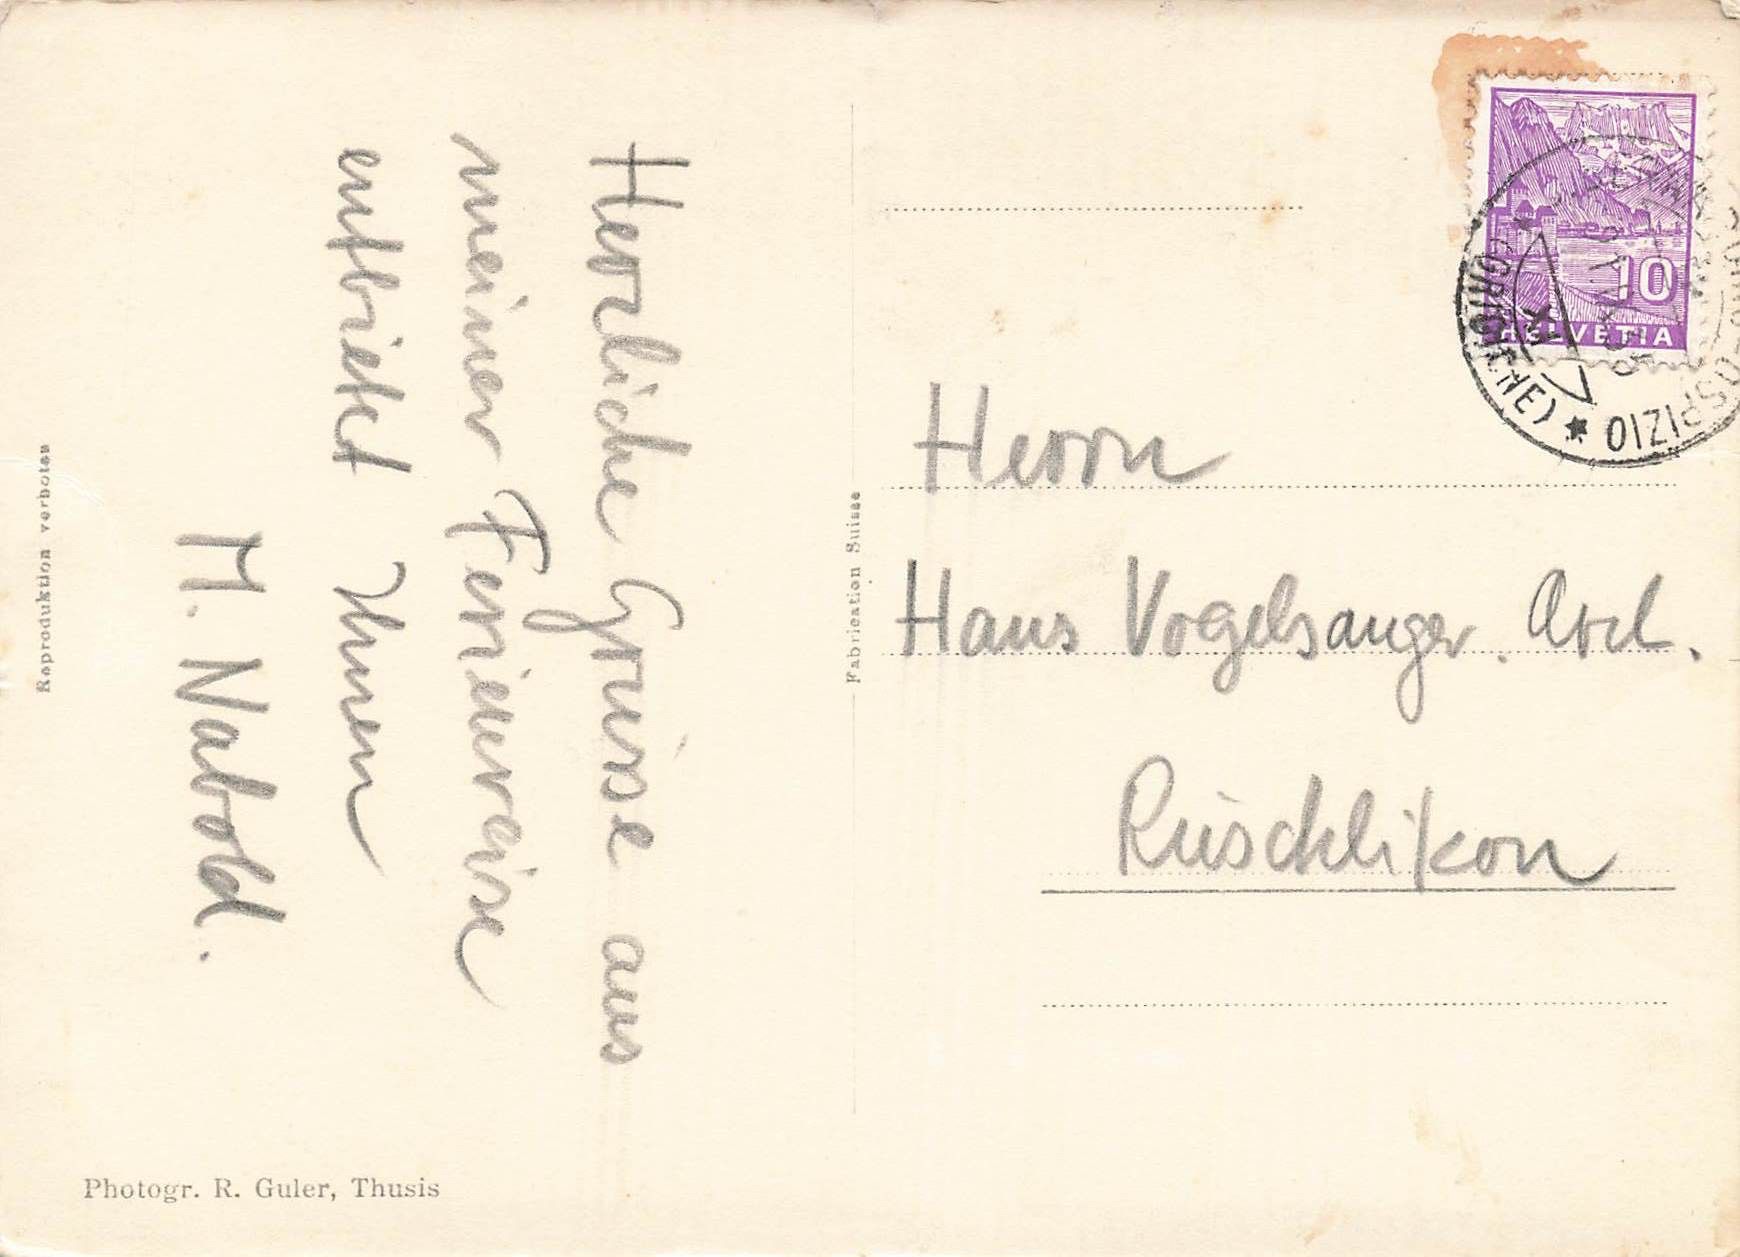 Herzliche Grüsse aus
meiner Ferienreise
entbietet Ihnen
M. Nabold.
Reproduktion verboten
Photogr. R. Guler, Thusis
Fabrication Suisse
Herrn
Hans Vogelsanger. Arch.
Rüschlikon
10
HELVETIA
BERNINA OSPIZIO
(GRIGIONE)